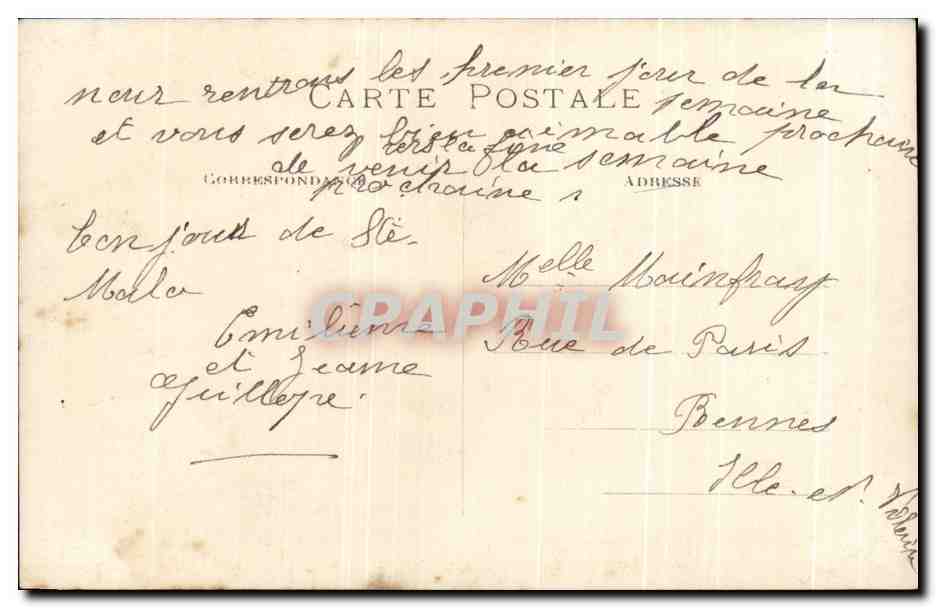 nour rentrons les premier jour de la
CARTE POSTALE
semaine
et vous serez bien aimable prochaine
vers la fine
de venir la semaine
CORRESPONDANCE
ADRESSE
prochaine,
bonjour de St-
Malo
Emilienne
et Jeanne
Guillope.
Melle Mainfray
Rue de Paris
Rennes
Ille-et-Vilaine
CPAPHIL